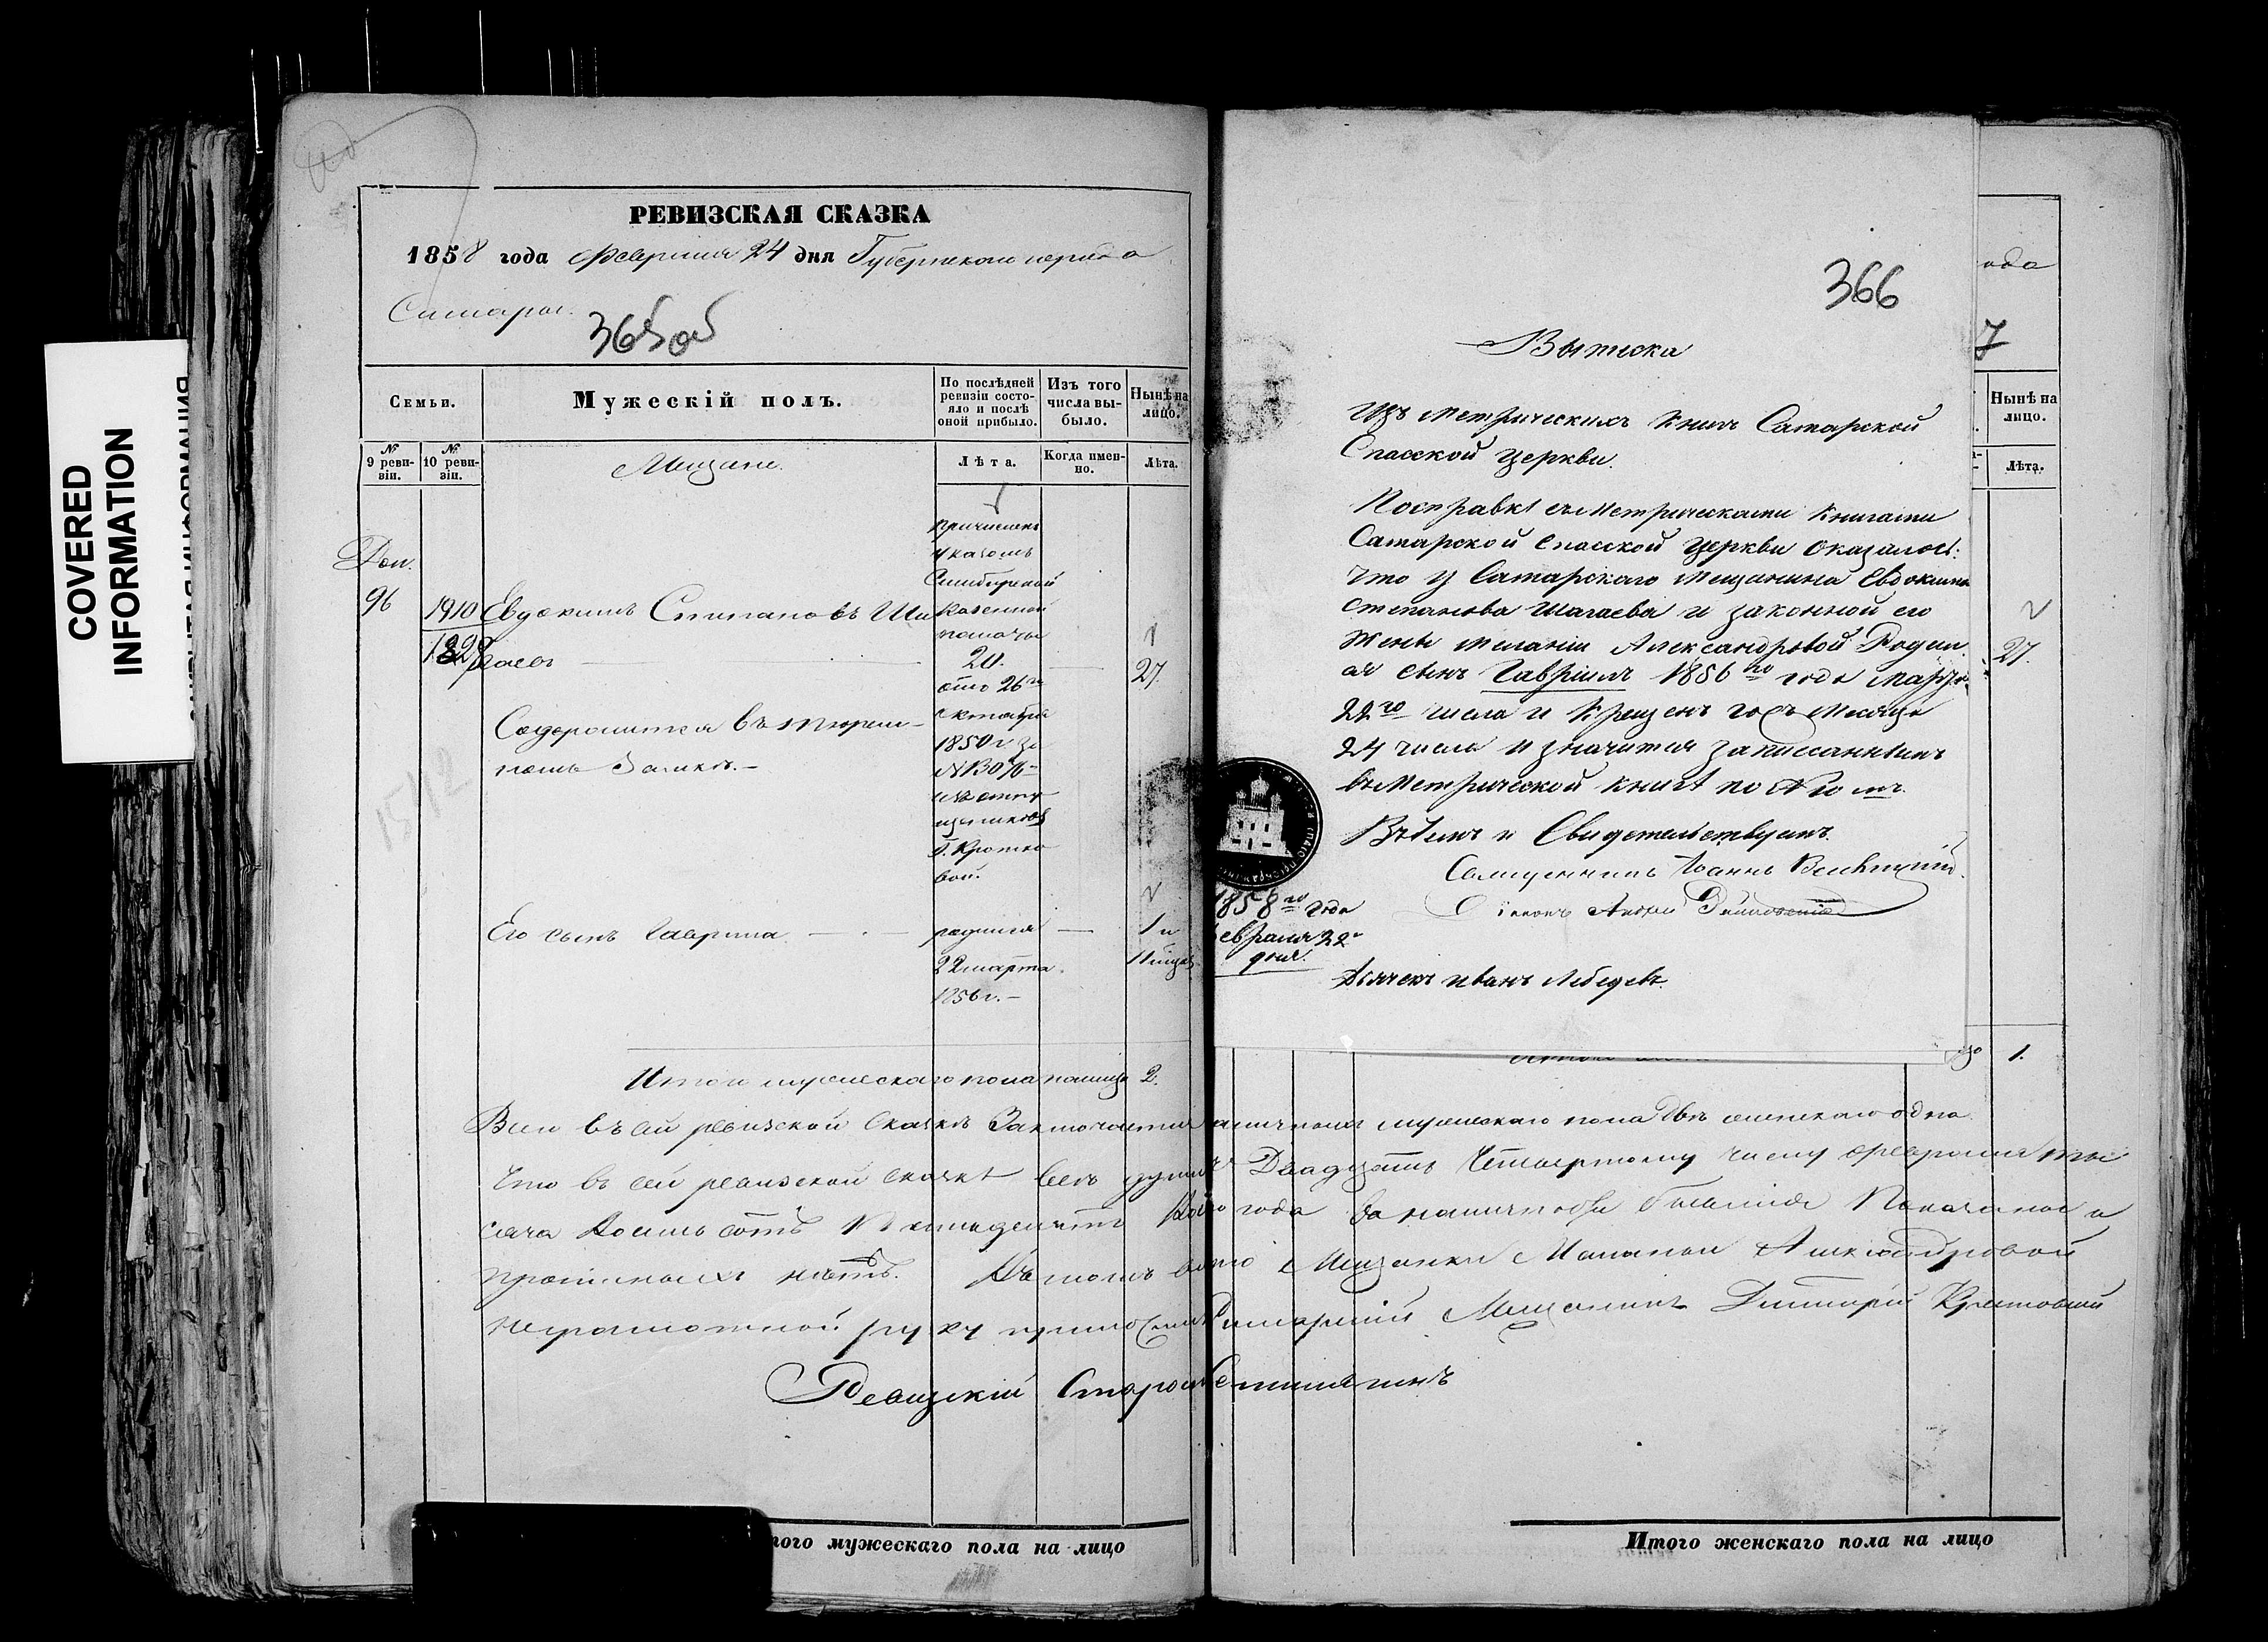 COVERED
INFORMATION
РЕВИЗСКАЯ СКАЗКА
1858 года Февраля 24 дня Губернскаго города
Самары.
365 об
Семьи.
Мужескій полъ.
По послѣдней ревизіи состояло и послѣ оной прибыло.
Изъ того числа выбыло.
Нынѣ на лицо.
№ 9 ревизіи.
№ 10 ревизіи.
Мещане.
Лѣта.
Когда именно.
Лѣта.
Доп.
96
1910
1828
Евдокимъ Степановъ Ша
гаевъ
Содержится въ тюрем-
номъ Замкѣ.
причисленъ
указомъ
Симбирской
казенной
палаты
20.
отъ 26го
октября
1850 г. за
27.
Его сынъ Гаврила
родился
22 марта
1856 г.
1 и
Итого мужескаго пола на лицо 2.
Всего въ сей ревизской сказкѣ Заключается наличныхъ мужескаго пола двѣ женскаго одна.
Что въ сей ревизской сказкѣ всѣ души къ Двадцать Четвертому числу февраля ты
сяча восемь сотъ Пятьдесятъ года въ наличности Показаны и
прописныхъ нѣтъ. Въ томъ вмѣсто Мещанки Маланьи Александровой
неграмотной руку приложилъ Самарскій Мещанинъ Дмитрій
Ревизскій Староста
того мужескаго пола на лицо
366
Выписка
Изъ Метрическихъ Книгъ Самарской
Спасской Церкви.
По справкѣ съ Метрическими Книгами
Самарской Спасской Церкви Оказалось:
что у Самарскаго Мещанина Евдокима
Степанова Шагаева и законной его
Жены Меланіи Александровой Родил
ся сынъ Гавріилъ 1856го года Марта
22го числа и Крещенъ того жъ Месяца
24 числа и значится записаннымъ
въ Метрической книгѣ по № 10мъ.
Въ чемъ и Свидетельствуемъ.
Священникъ Іоаннъ
Діаконъ Андрей
1858го года
февраля 22
дня.
Дьячекъ Иванъ Лебедевъ.
7
Нынѣ на лицо.
Лѣта.
27.
1.
Итого женскаго пола на лицо